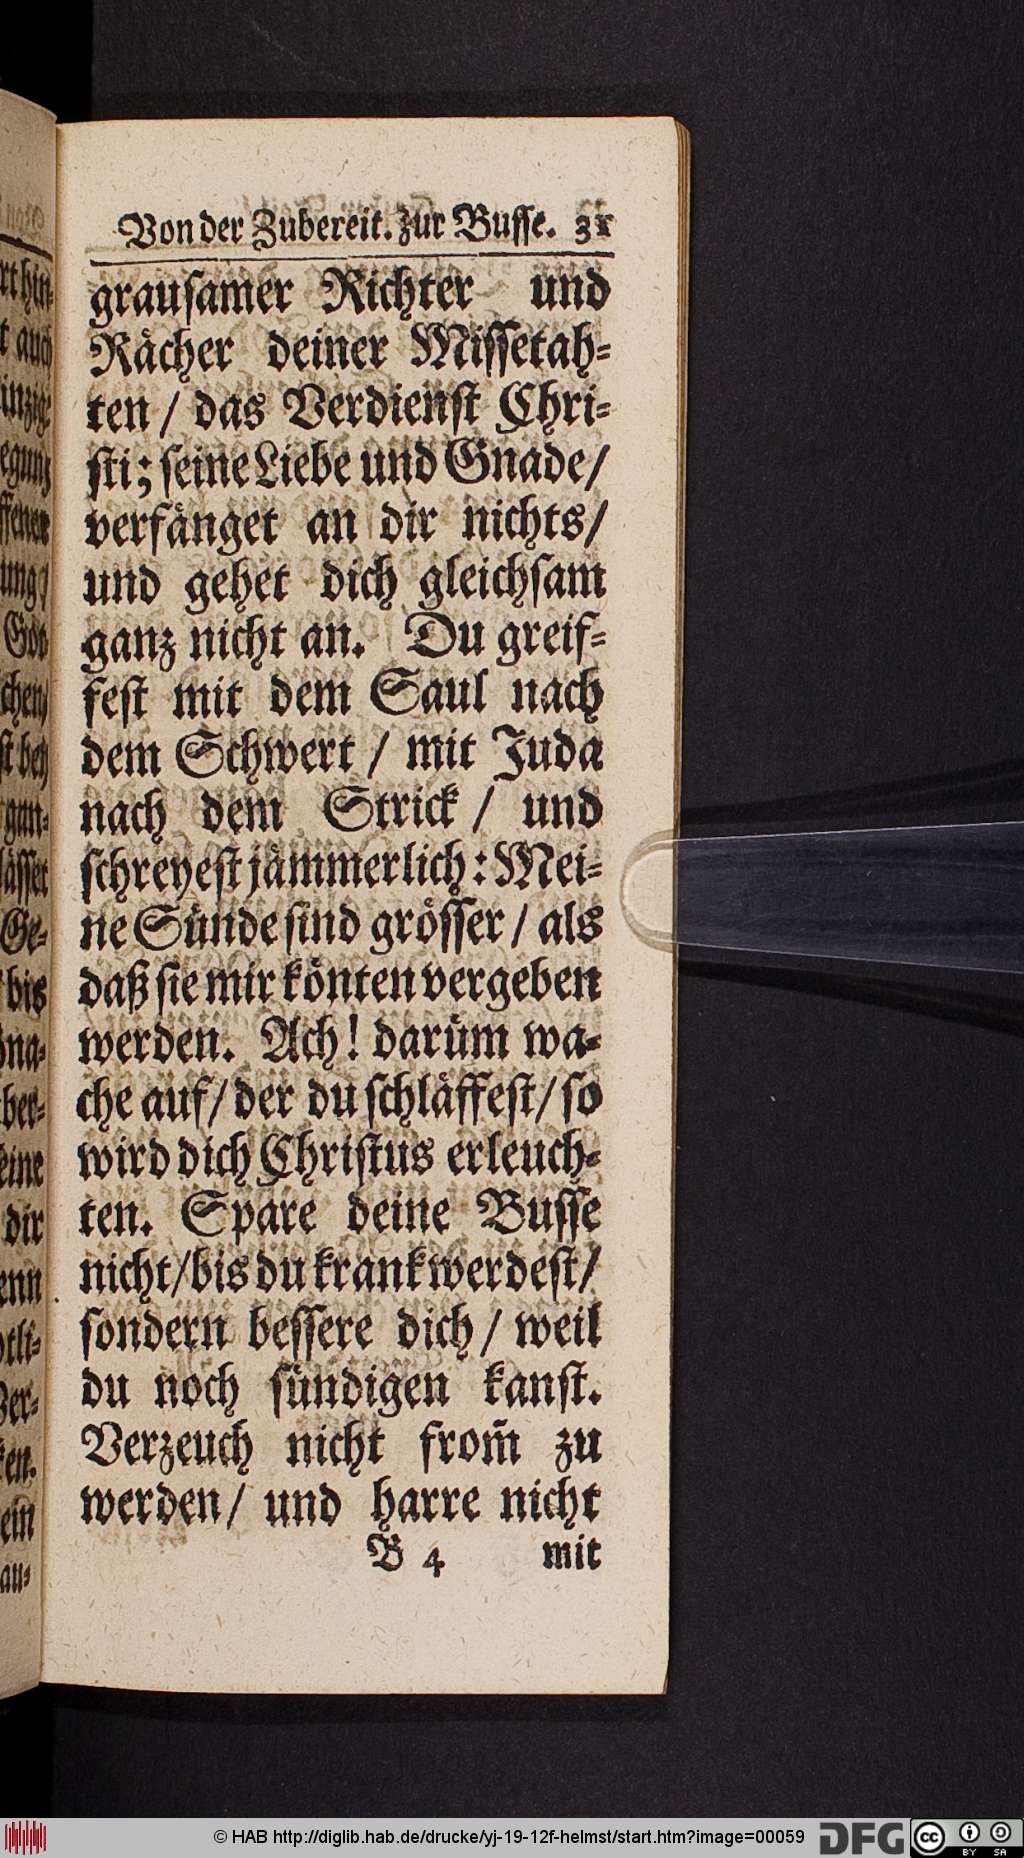 Von der Zubereit. zur Busse. 31
grausamer Richter und
Rächer deiner Missetah-
ten / das Verdienst Chri-
sti; seine Liebe und Gnade /
verfänget an dir nichts /
und gehet dich gleichsam
ganz nicht an. Du greif-
fest mit dem Saul nach
dem Schwert / mit Juda
nach dem Strick / und
schreyest jämmerlich: Mei-
ne Sünde sind grösser / als
daß sie mir könten vergeben
werden. Ach! darüm wa-
che auf / der du schläffest / so
wird dich Christus erleuch-
ten. Spare deine Busse
nicht / bis du krank werdest /
sondern bessere dich / weil
du noch sündigen kanst.
Verzeuch nicht from̃ zu
werden / und harre nicht
B 4 mit
© HAB http://diglib.hab.de/drucke/yj-19-12f-helmst/start.htm?image=00059
DFG
cc BY SA